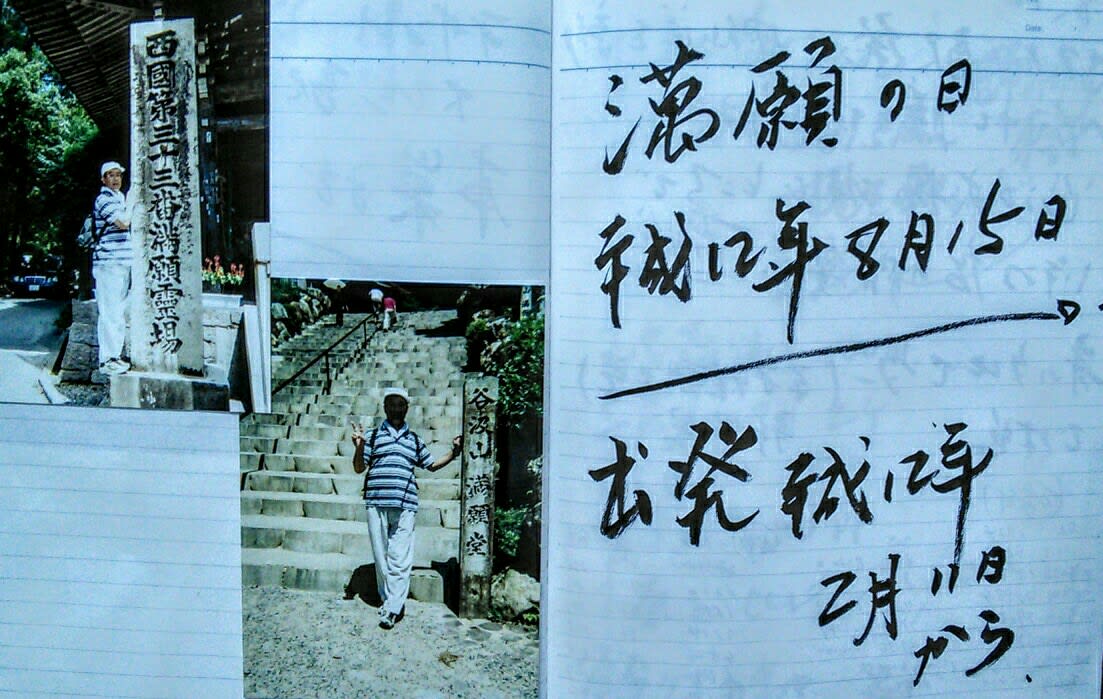 西國第三十三番満願霊場
谷汲山 満願堂
Date
満願の日
平成12年8月15日
出発 平成12年
2月11日
から.